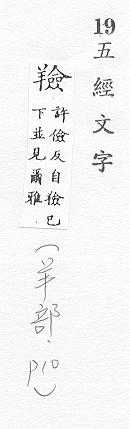 19五經文字
羷
許儉反自已
下並見爾雅
(羊部.p10)